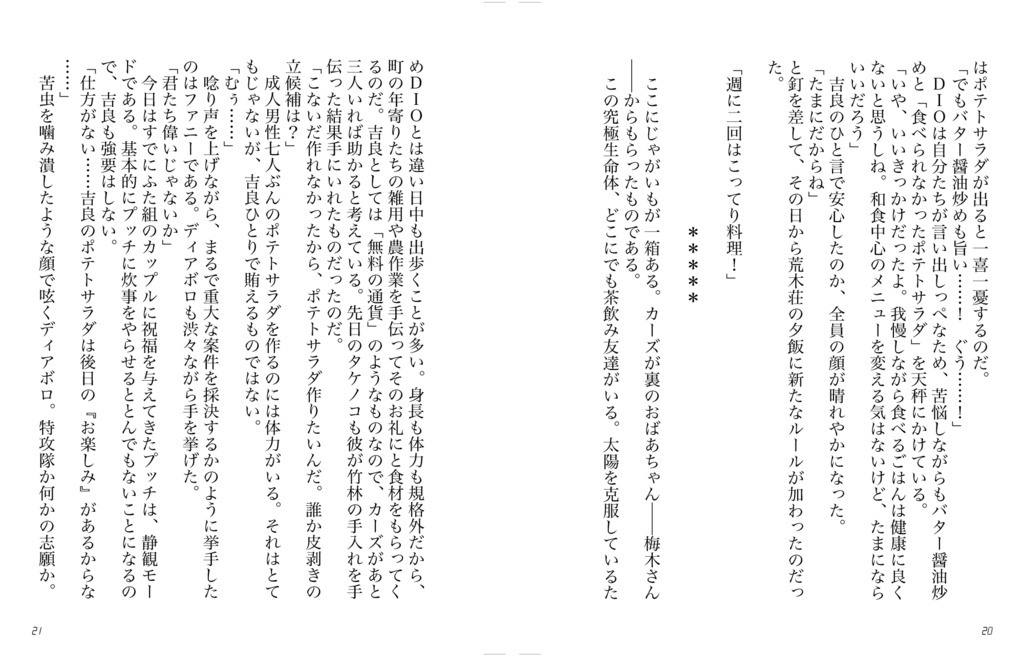 はポテトサラダが出ると一喜一憂するのだ。
「でもバター醤油炒めも旨い……！　ぐう……！」
　DIOは自分たちが言い出しっぺなため、苦悩しながらもバター醤油炒
めと「食べられなかったポテトサラダ」を天秤にかけている。
「いや、いいきっかけだったよ。我慢しながら食べるごはんは健康に良く
ないと思うしね。和食中心のメニューを変える気はないけど、たまになら
いいだろう」
　吉良のひと言で安心したのか、全員の顔が晴れやかになった。
「たまにだからね」
と釘を差して、その日から荒木荘の夕飯に新たなルールが加わったのだっ
た。
「週に二回はこってり料理！」
＊＊＊＊＊
　ここにじゃがいもが一箱ある。カーズが裏のおばあちゃん――梅木さん
――からもらったものである。
　この究極生命体、どこにでも茶飲み友達がいる。太陽を克服しているた
20
めDIOとは違い日中も出歩くことが多い。身長も体力も規格外だから、
町の年寄りたちの雑用や農作業を手伝ってそのお礼にと食材をもらってく
るのだ。吉良としては「無料の通貨」のようなものなので、カーズがあと
三人いれば助かると考えている。先日のタケノコも彼が竹林の手入れを手
伝った結果手にいれたものだったのだ。
「こないだ作れなかったから、ポテトサラダ作りたいんだ。誰か皮剥きの
立候補は？」
　成人男性七人ぶんのポテトサラダを作るのには体力がいる。それはとて
もじゃないが、吉良ひとりで賄えるものではない。
「むぅ……」
　唸り声を上げながら、まるで重大な案件を採決するかのように挙手した
のはファニーである。ディアボロも渋々ながら手を挙げた。
「君たち偉いじゃないか」
　今日はすでにふた組のカップルに祝福を与えてきたプッチは、静観モー
ドである。基本的にプッチに炊事をやらせるととんでもないことになるの
で、吉良も強要はしない。
「仕方がない……吉良のポテトサラダは後日の『お楽しみ』があるからな
……」
　苦虫を噛み潰したような顔で呟くディアボロ。特攻隊か何かの志願か。
21